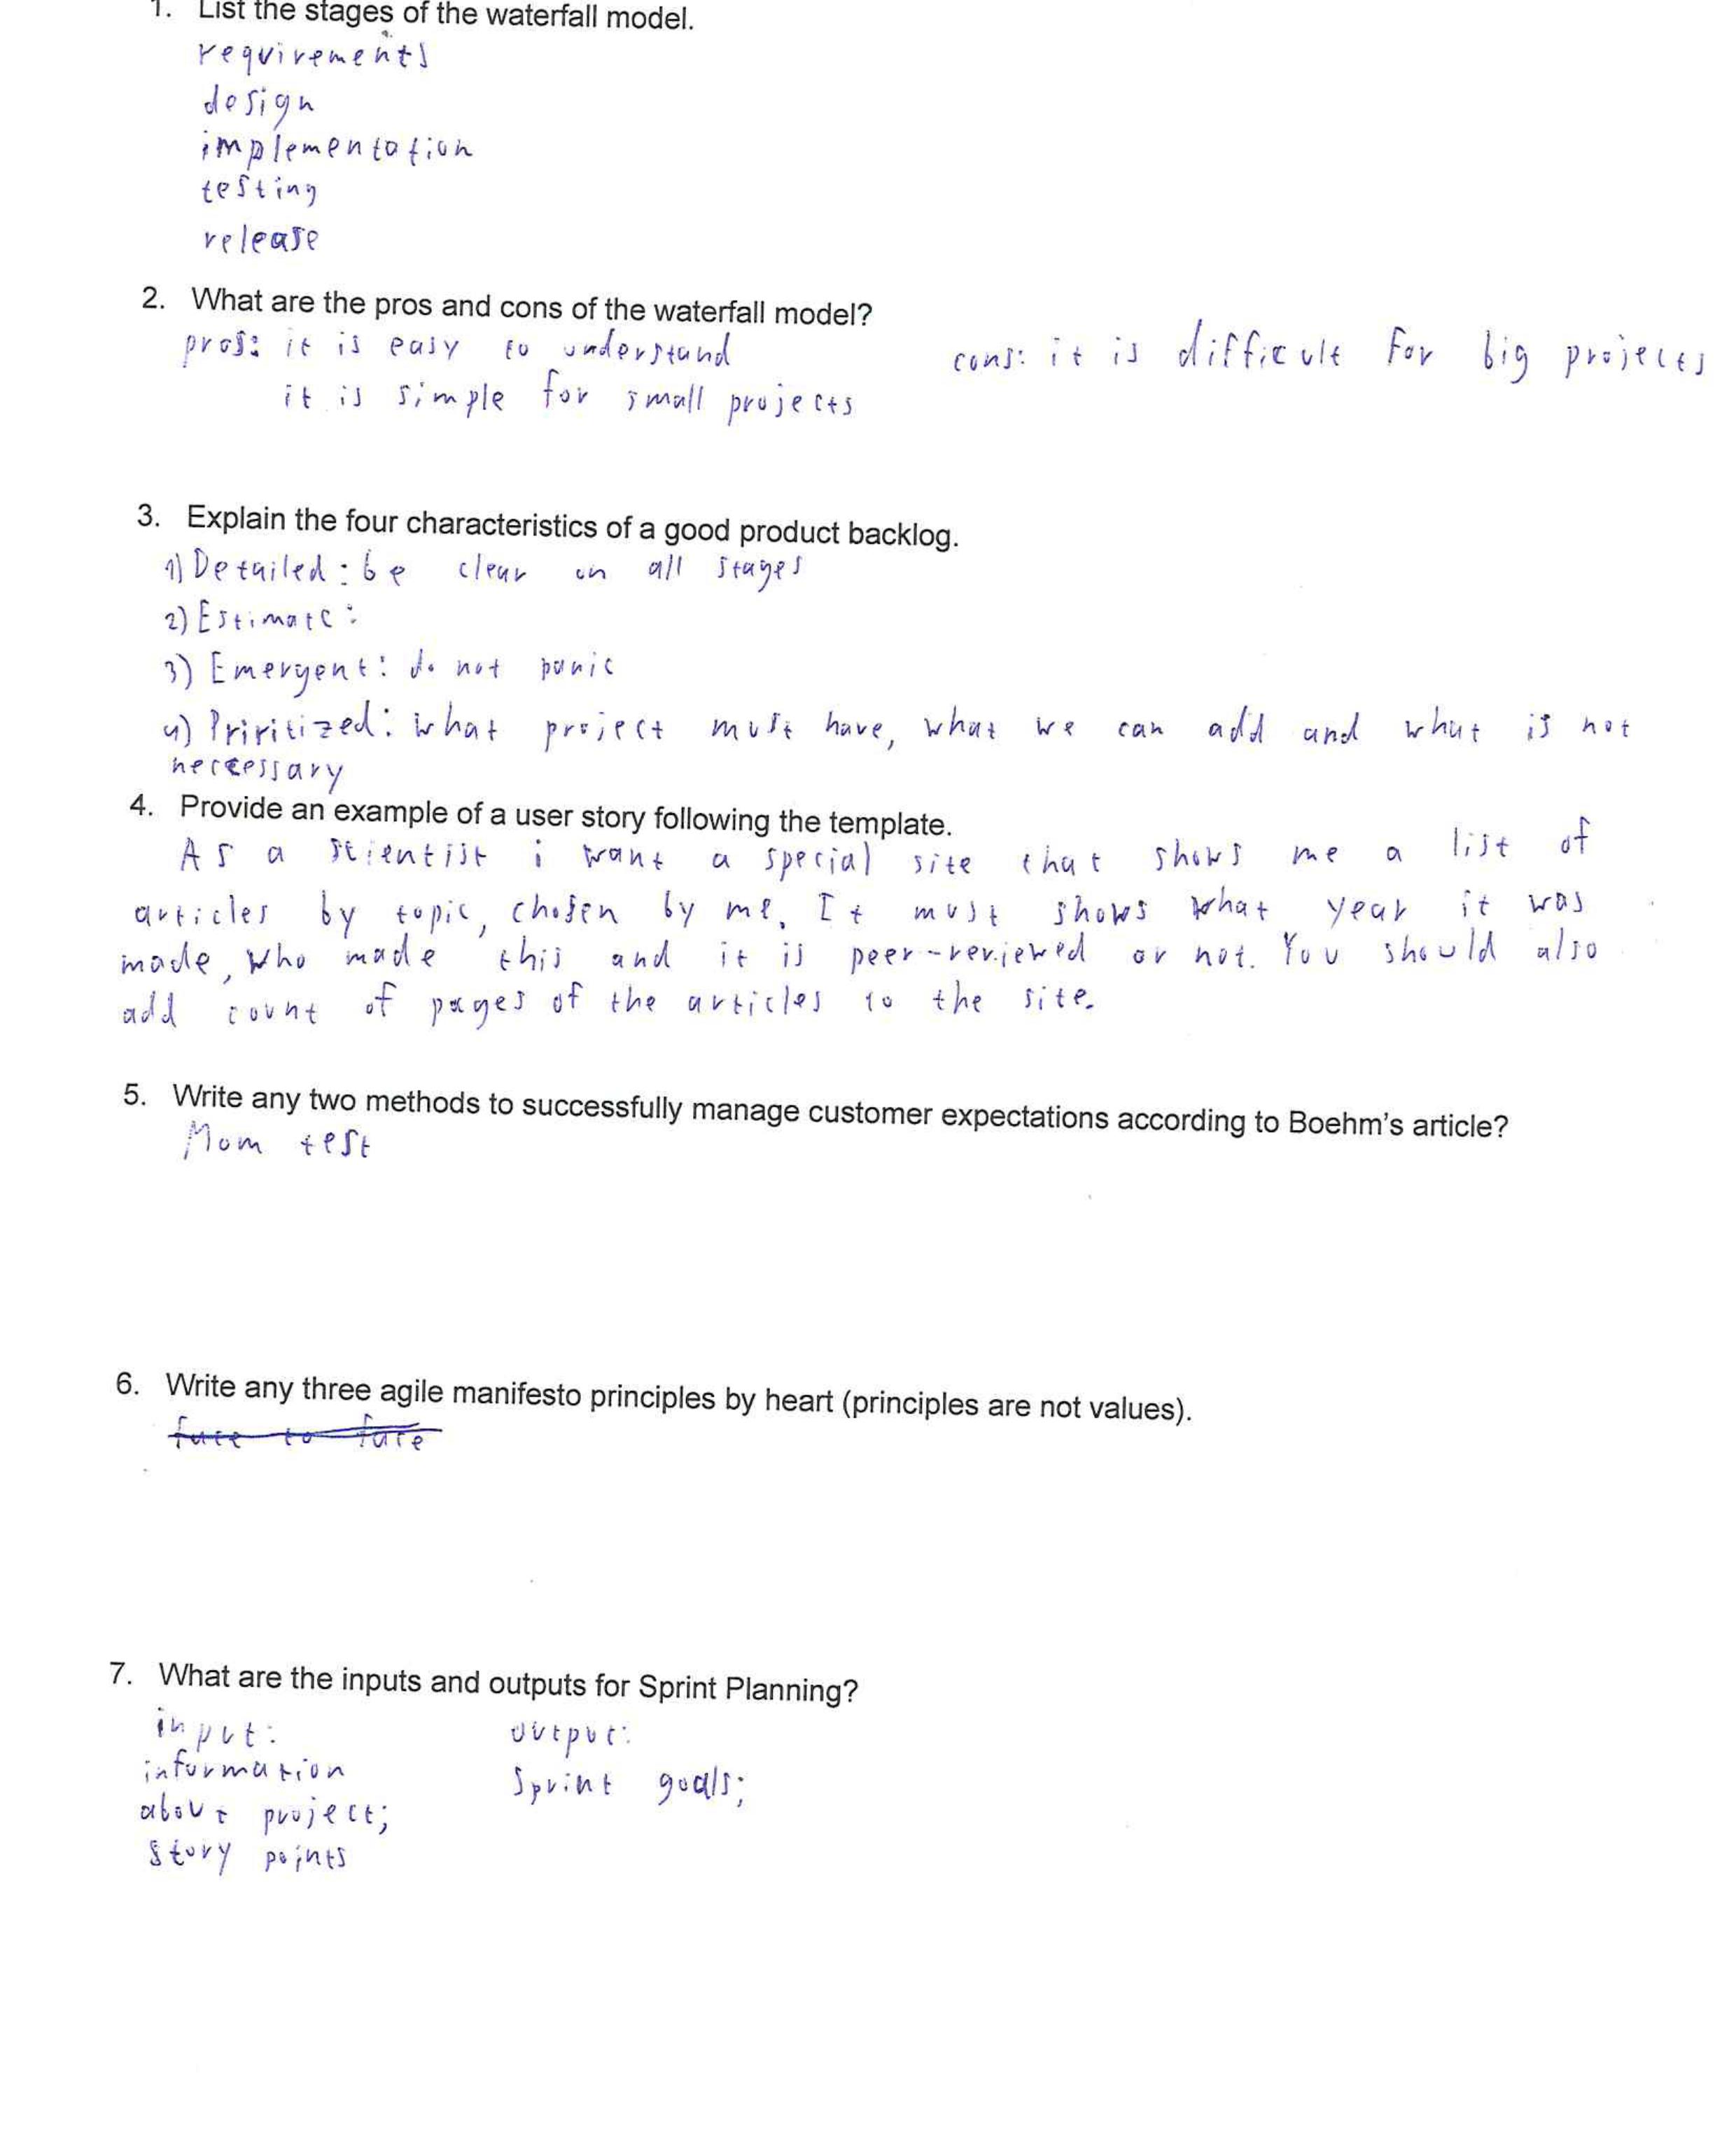 1. List the stages of the waterfall model.
requirements
design
implementation
testing
release
2. What are the pros and cons of the waterfall model?
pros: it is easy to understand
it is simple for small projects
cons: it is difficult for big projects
3. Explain the four characteristics of a good product backlog.
1) Detailed: be clear on all stages
2) Estimate:
3) Emergent: do not panic
4) Priritized: what project must have, what we can add and what is not
neccessary
4. Provide an example of a user story following the template.
As a scientist i want a special site that shows me a list of
articles by topic, chosen by me. It must shows what year it was
made, who made this and it is peer-reviewed or not. You should also
add count of pages of the articles to the site.
5. Write any two methods to successfully manage customer expectations according to Boehm's article?
Mom test
6. Write any three agile manifesto principles by heart (principles are not values).
face to face
7. What are the inputs and outputs for Sprint Planning?
input:
information
about project;
story points
output:
Sprint goals;